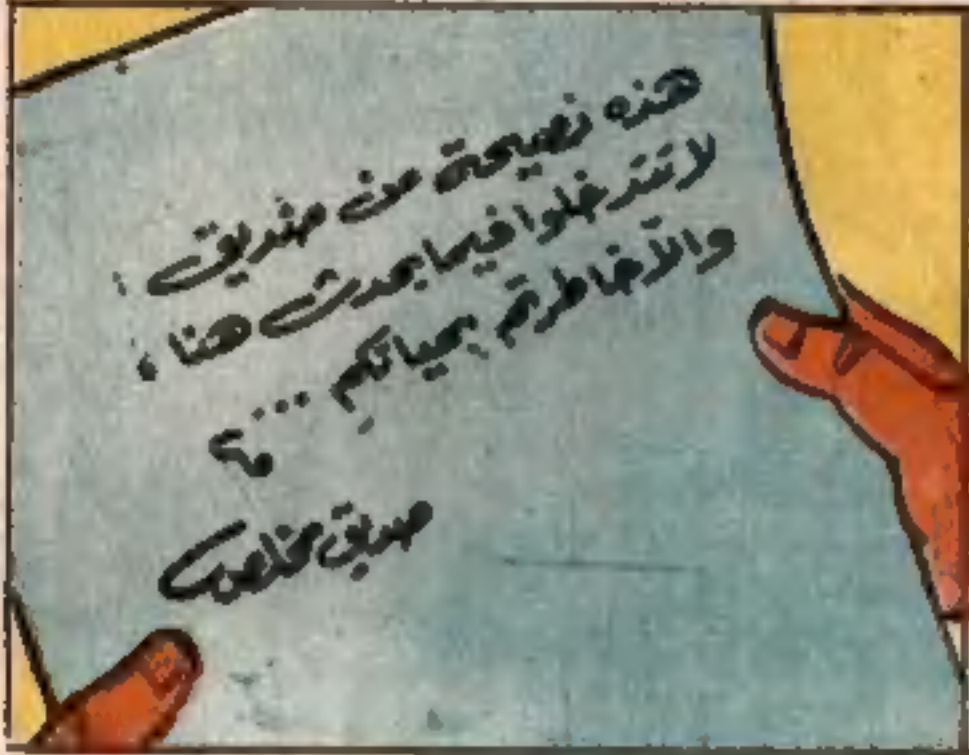 هذه نصيحة من صديق :
لا تتدخلوا فيما يحدث هنا ،
والّا خاطرتم بحياتكم ...
صديق مخلص